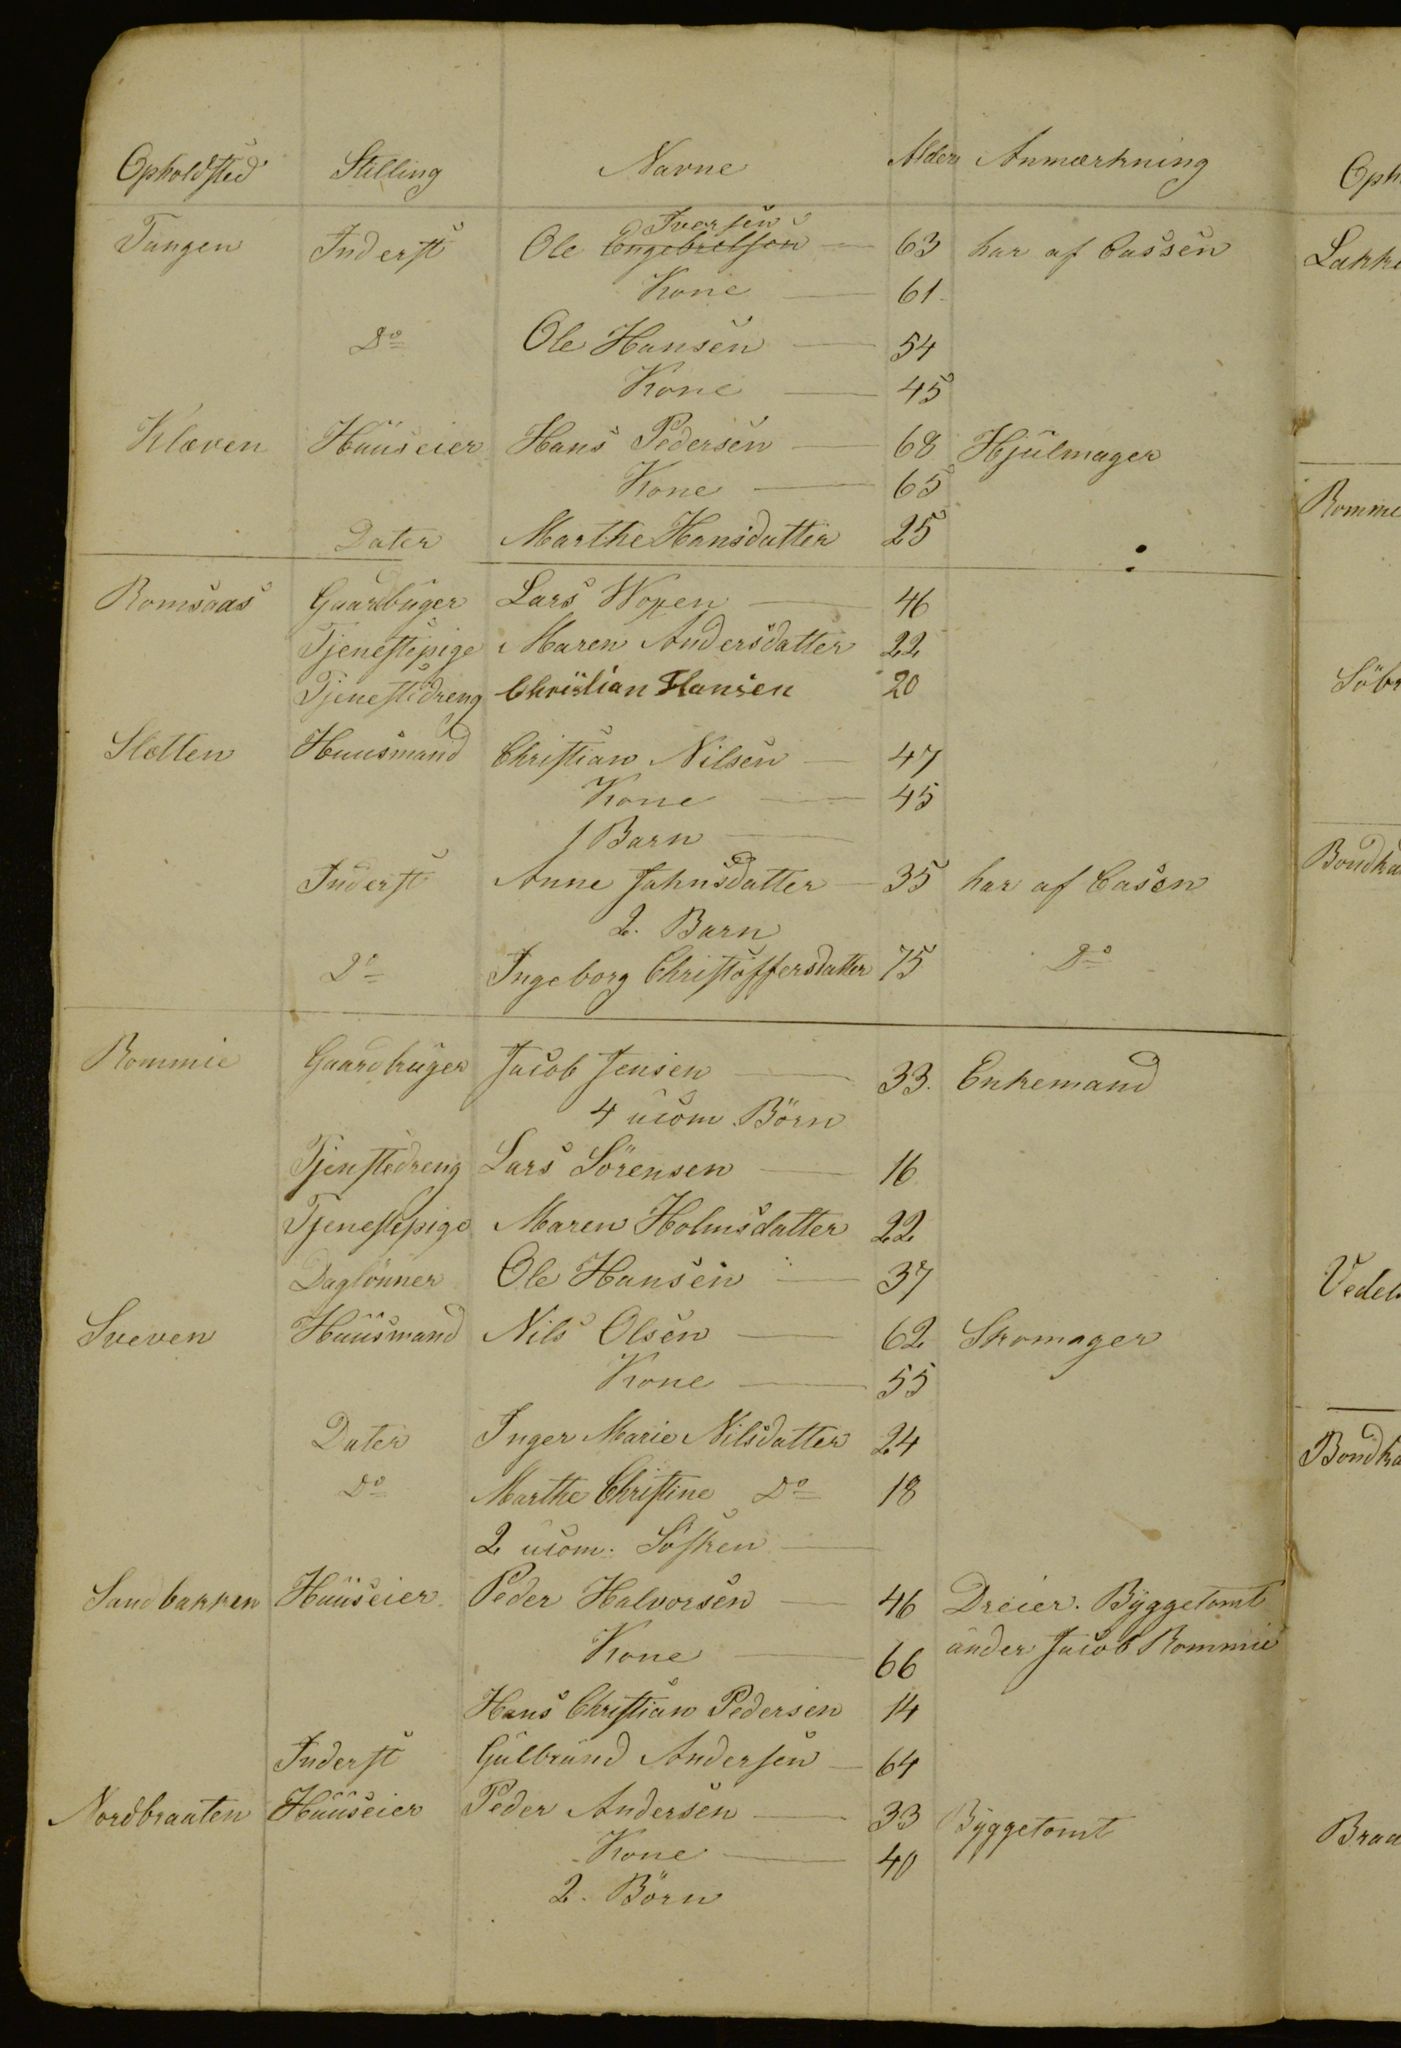 Opholdsted Stilling Navne Alder Anmærkning
Iversen
Tangen Inderst Ole Engebretsen — 63 har af Cassen
Kone — 61.
Do Ole Hansen — 54
Kone — 45
Klæven Huuseier Hans Pedersen — 68 Hjulmager
Kone — 65
Dater Marthe Hansdatter 25
Romsaas Gaardbuger Lars Woxen — 46
Tjenestepige Maren Andersdatter 22
Tjenestedreng Christian Hansen 20
Sletten Huusmand Christian Nilsen — 47
Kone — 45
1 Barn —
Inderst Anne Jahnsdatter — 35 har af Casen
2. Barn
Do Ingeborg Christoffersdatter 75 Do
Rommie Gaardbruger Jacob Jensen — 33. Enkemand
4 ucom. Börn
Tjenstedreng Lars Sörensen — 16
Tjenestepige Maren Holmsdatter 22
Daglönner Ole Hansen — 37
Sveven Huusmand Nils Olsen — 62 Skomager
Kone — 55
Dater Inger Marie Nilsdatter 24
Do Marthe Christine Do 18
2 ucom. Sösken —
Sandbakken Huuseier Peder Halvorsen — 46 Dreier. Byggetomt
Kone — 66 under Jacob Rommie
Hans Christian Pedersen 14
Inderst Gulbrand Andersen — 64
Nordbraaten Huuseier Peder Andersen — 33 Byggetomt
Kone — 40
2. Börn
Oph
Lakke
Romme
Söbr
Bondka
Vedels
Bondka
Braa